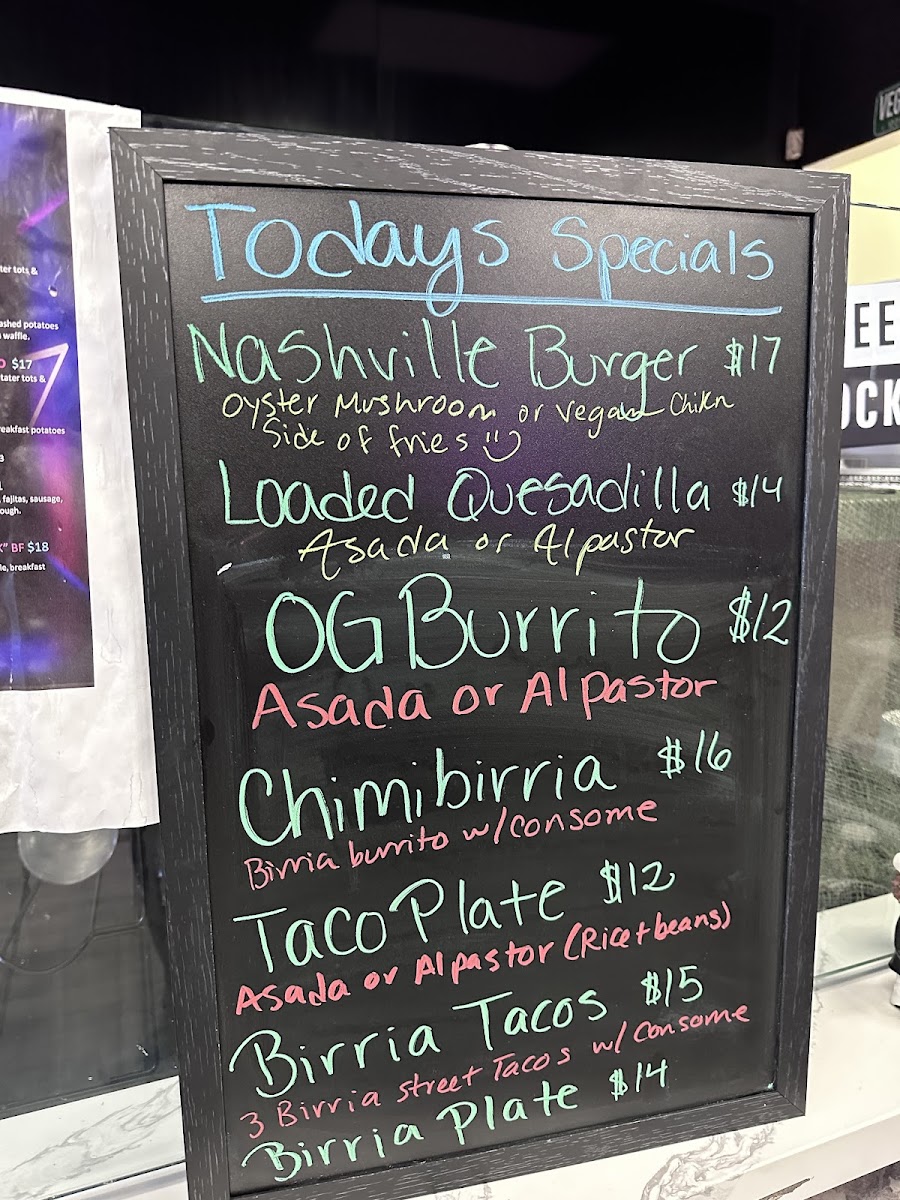 Todays Specials
Nashville Burger $17
Oyster Mushroom or Vegan Chikn
Side of fries
Loaded Quesadilla $14
Asada or Al pastor
OG Burrito $12
Asada or Al pastor
Chimibirria $16
Birria burrito w/consome
Taco Plate $12
Asada or Al pastor (Rice + beans)
Birria Tacos $15
3 Birria street Tacos w/ consome
Birria Plate $14
ter tots &
ashed potatoes
waffle.
$17
tater tots &
eakfast potatoes
, fajitas, sausage,
ough.
BF $18
le, breakfast
VEG
EE
OCK